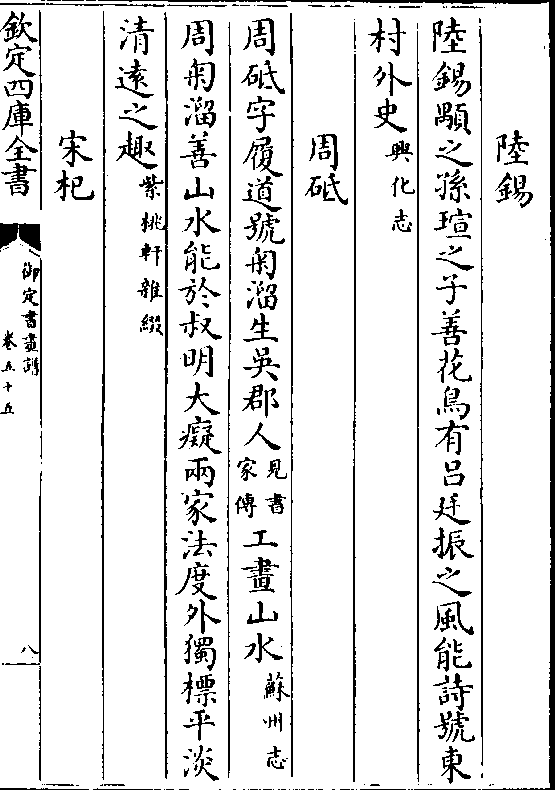 陸錫
陸錫顒之孫瑄之子善花鳥有呂廷振之風能詩號東
村外史興化志
周砥
周砥字履道號匊溜生吳郡人見書家傳工畫山水蘇州志
周匊溜善山水能於叔明大癡兩家法度外獨標平淡
清遠之趣紫桃軒雜綴
宋杞
欽定四庫全書
御定書畫譜
卷五十五
八